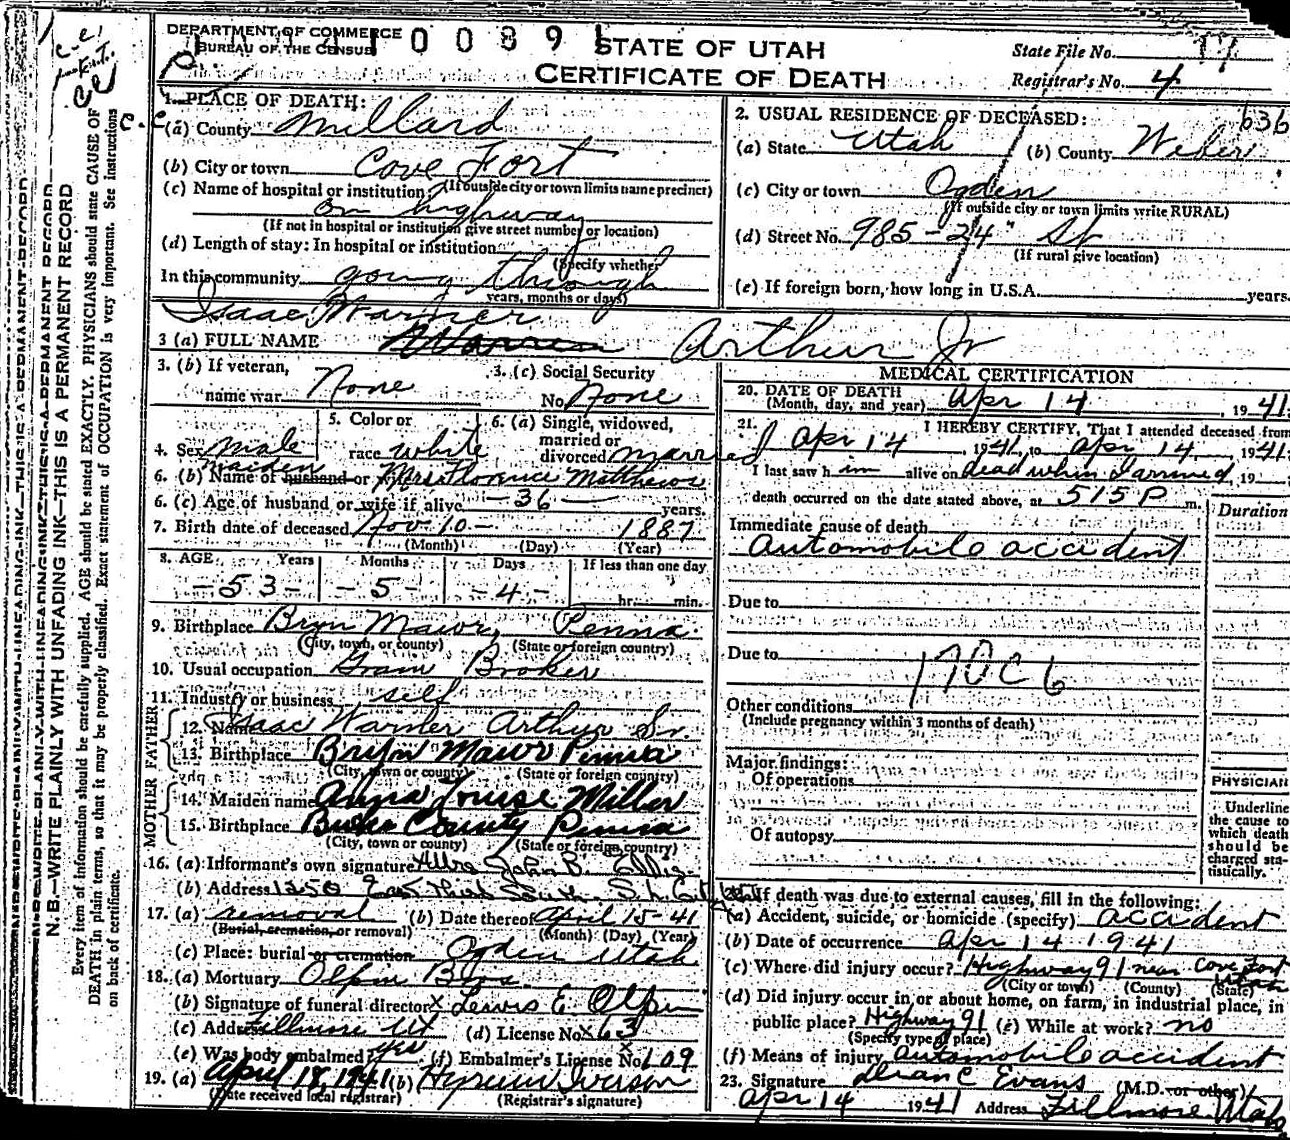 DEPARTMENT OF COMMERCE
BUREAU OF THE CENSUS
0 0 8 9 1
STATE OF UTAH
CERTIFICATE OF DEATH
State File No.
Registrar's No. 4
N.B.—WRITE PLAINLY WITH UNFADING INK—THIS IS A PERMANENT RECORD
Every item of information should be carefully supplied. AGE should be stated EXACTLY. PHYSICIANS should state CAUSE OF
DEATH in plain terms, so that it may be properly classified. Exact statement of OCCUPATION is very important. See instructions
on back of certificate.
1. PLACE OF DEATH:
(a) County Millard
(b) City or town Cove Fort
(If outside city or town limits name precinct)
(c) Name of hospital or institution
on highway
(If not in hospital or institution give street number or location)
(d) Length of stay: In hospital or institution
(Specify whether
In this community going through
years, months or days)
636
2. USUAL RESIDENCE OF DECEASED:
(a) State Utah (b) County Weber
(c) City or town Ogden
(If outside city or town limits write RURAL)
(d) Street No. 985-24" St
(If rural give location)
(e) If foreign born, how long in U.S.A. years.
Isaac Warner
3 (a) FULL NAME Arthur Jr
3. (b) If veteran, name war None
3. (c) Social Security No. None
4. Sex male
5. Color or race white
6. (a) Single, widowed, married or divorced married
maiden
6. (b) Name of husband or wife Mrs Florence Matthews
6. (c) Age of husband or wife if alive -36- years.
7. Birth date of deceased Nov-10- 1887
(Month) (Day) (Year)
8. AGE Years Months Days If less than one day
-53- -5- -4- hr. min.
9. Birthplace Bryn Mawr, Penna.
(City, town, or county) (State or foreign country)
10. Usual occupation Grain Broker
11. Industry or business self
FATHER
12. Name Isaac Warner Arthur Sr.
13. Birthplace Bryn Mawr Penna
(City, town or county) (State or foreign country)
MOTHER
14. Maiden name Anna Louise Miller
15. Birthplace Bucks County Penna
(City, town or county) (State or foreign country)
16. (a) Informant's own signature Mrs John B. Ellis
(b) Address 1250 East Third South S. L. City
17. (a) removal (b) Date thereof April 15-41
(Burial, cremation, or removal) (Month) (Day) (Year)
(c) Place: burial or cremation Ogden Utah
18. (a) Mortuary Olpin Bros
(b) Signature of funeral director x Lewis E. Olpin
(c) Address Fillmore Ut (d) License No. x63
(e) Was body embalmed? yes (f) Embalmer's License No. 109
19. (a) April 18, 1941 (b) Hyrum Iverson
(Date received local registrar) (Registrar's signature)
MEDICAL CERTIFICATION
20. DATE OF DEATH
(Month, day, and year) Apr 14, 1941
21. I HEREBY CERTIFY, That I attended deceased from
Apr 14, 1941, to Apr 14, 1941.
I last saw him alive on dead when I arrived, 19
death occurred on the date stated above, at 515 P m.
Duration
Immediate cause of death
Automobile accident
Due to
Due to
170C6
Other conditions
(Include pregnancy within 3 months of death)
Major findings:
Of operations
Of autopsy
PHYSICIAN
Underline
the cause to
which death
should be
charged sta-
tistically.
If death was due to external causes, fill in the following:
(a) Accident, suicide, or homicide (specify) accident
(b) Date of occurrence Apr 14 1941
(c) Where did injury occur? Highway 91 near Cove Fort Utah
(City or town) (County) (State)
(d) Did injury occur in or about home, on farm, in industrial place, in
public place? Highway 91 (e) While at work? no
(Specify type of place)
(f) Means of injury automobile accident
23. Signature Dean C Evans (M.D. or other)
Apr 14 1941 Address Fillmore Utah